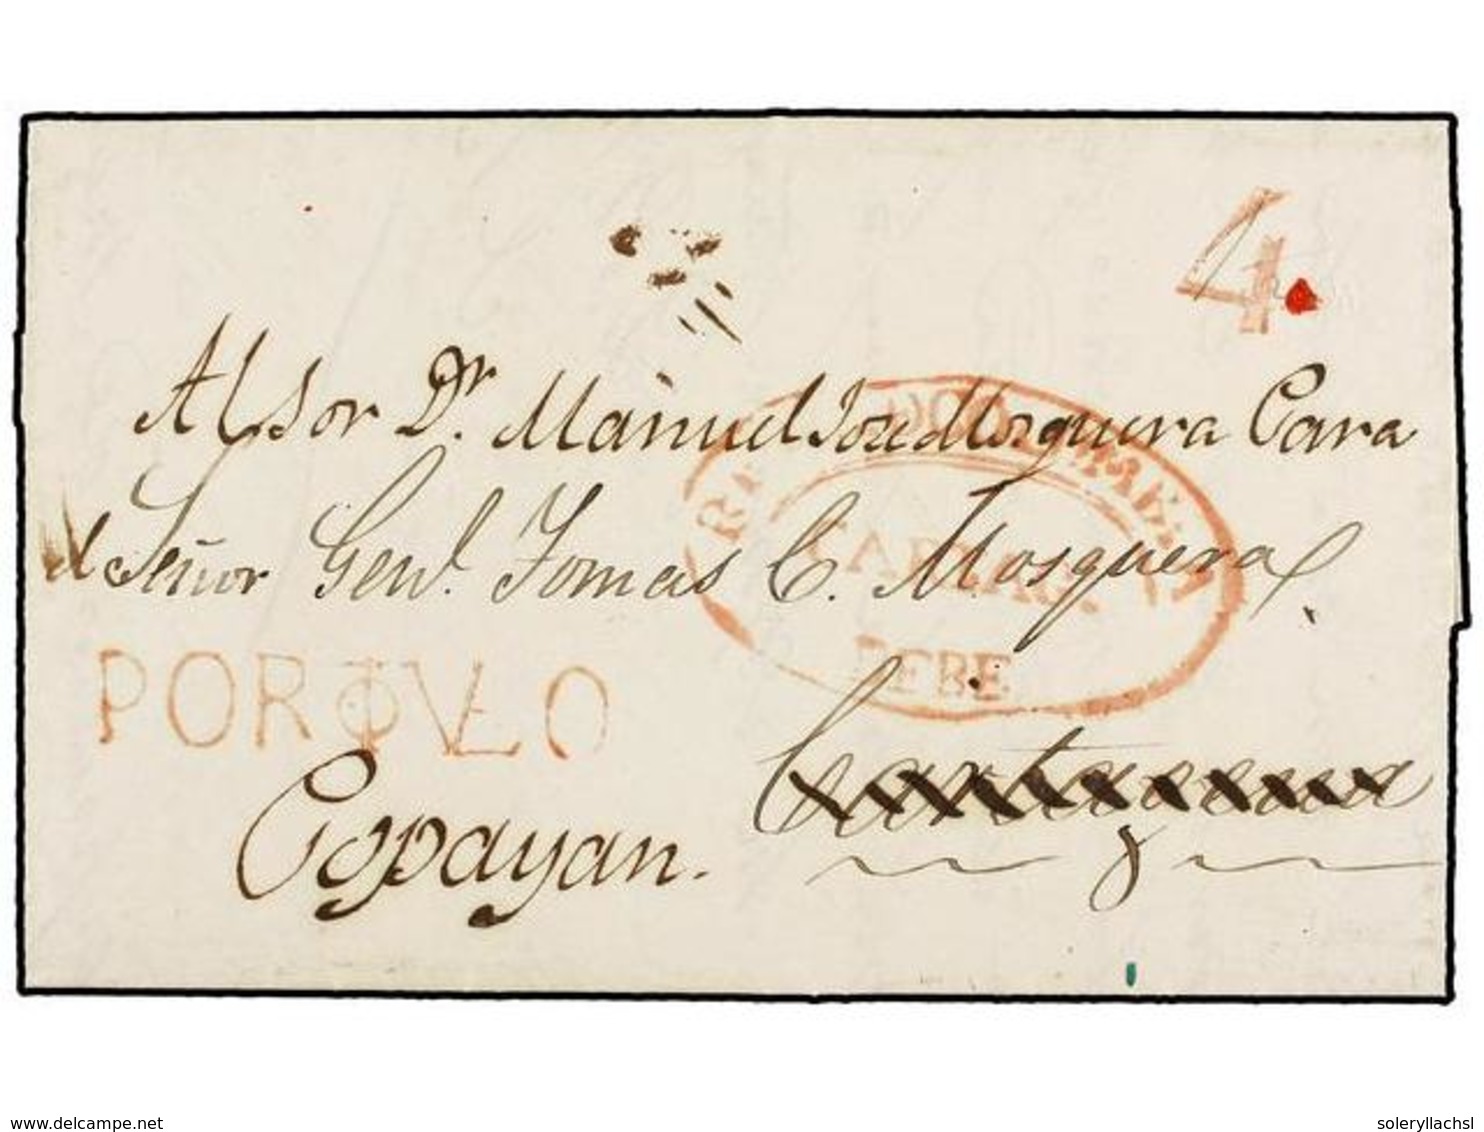 4
Al Sor Dr. Manuel Jose Mosquera Para
el Señor Genl. Tomas C. Mosquera
CARTAG.
DEBE
Popayan.
Cartagena
delcampe.net
soleryllachsl